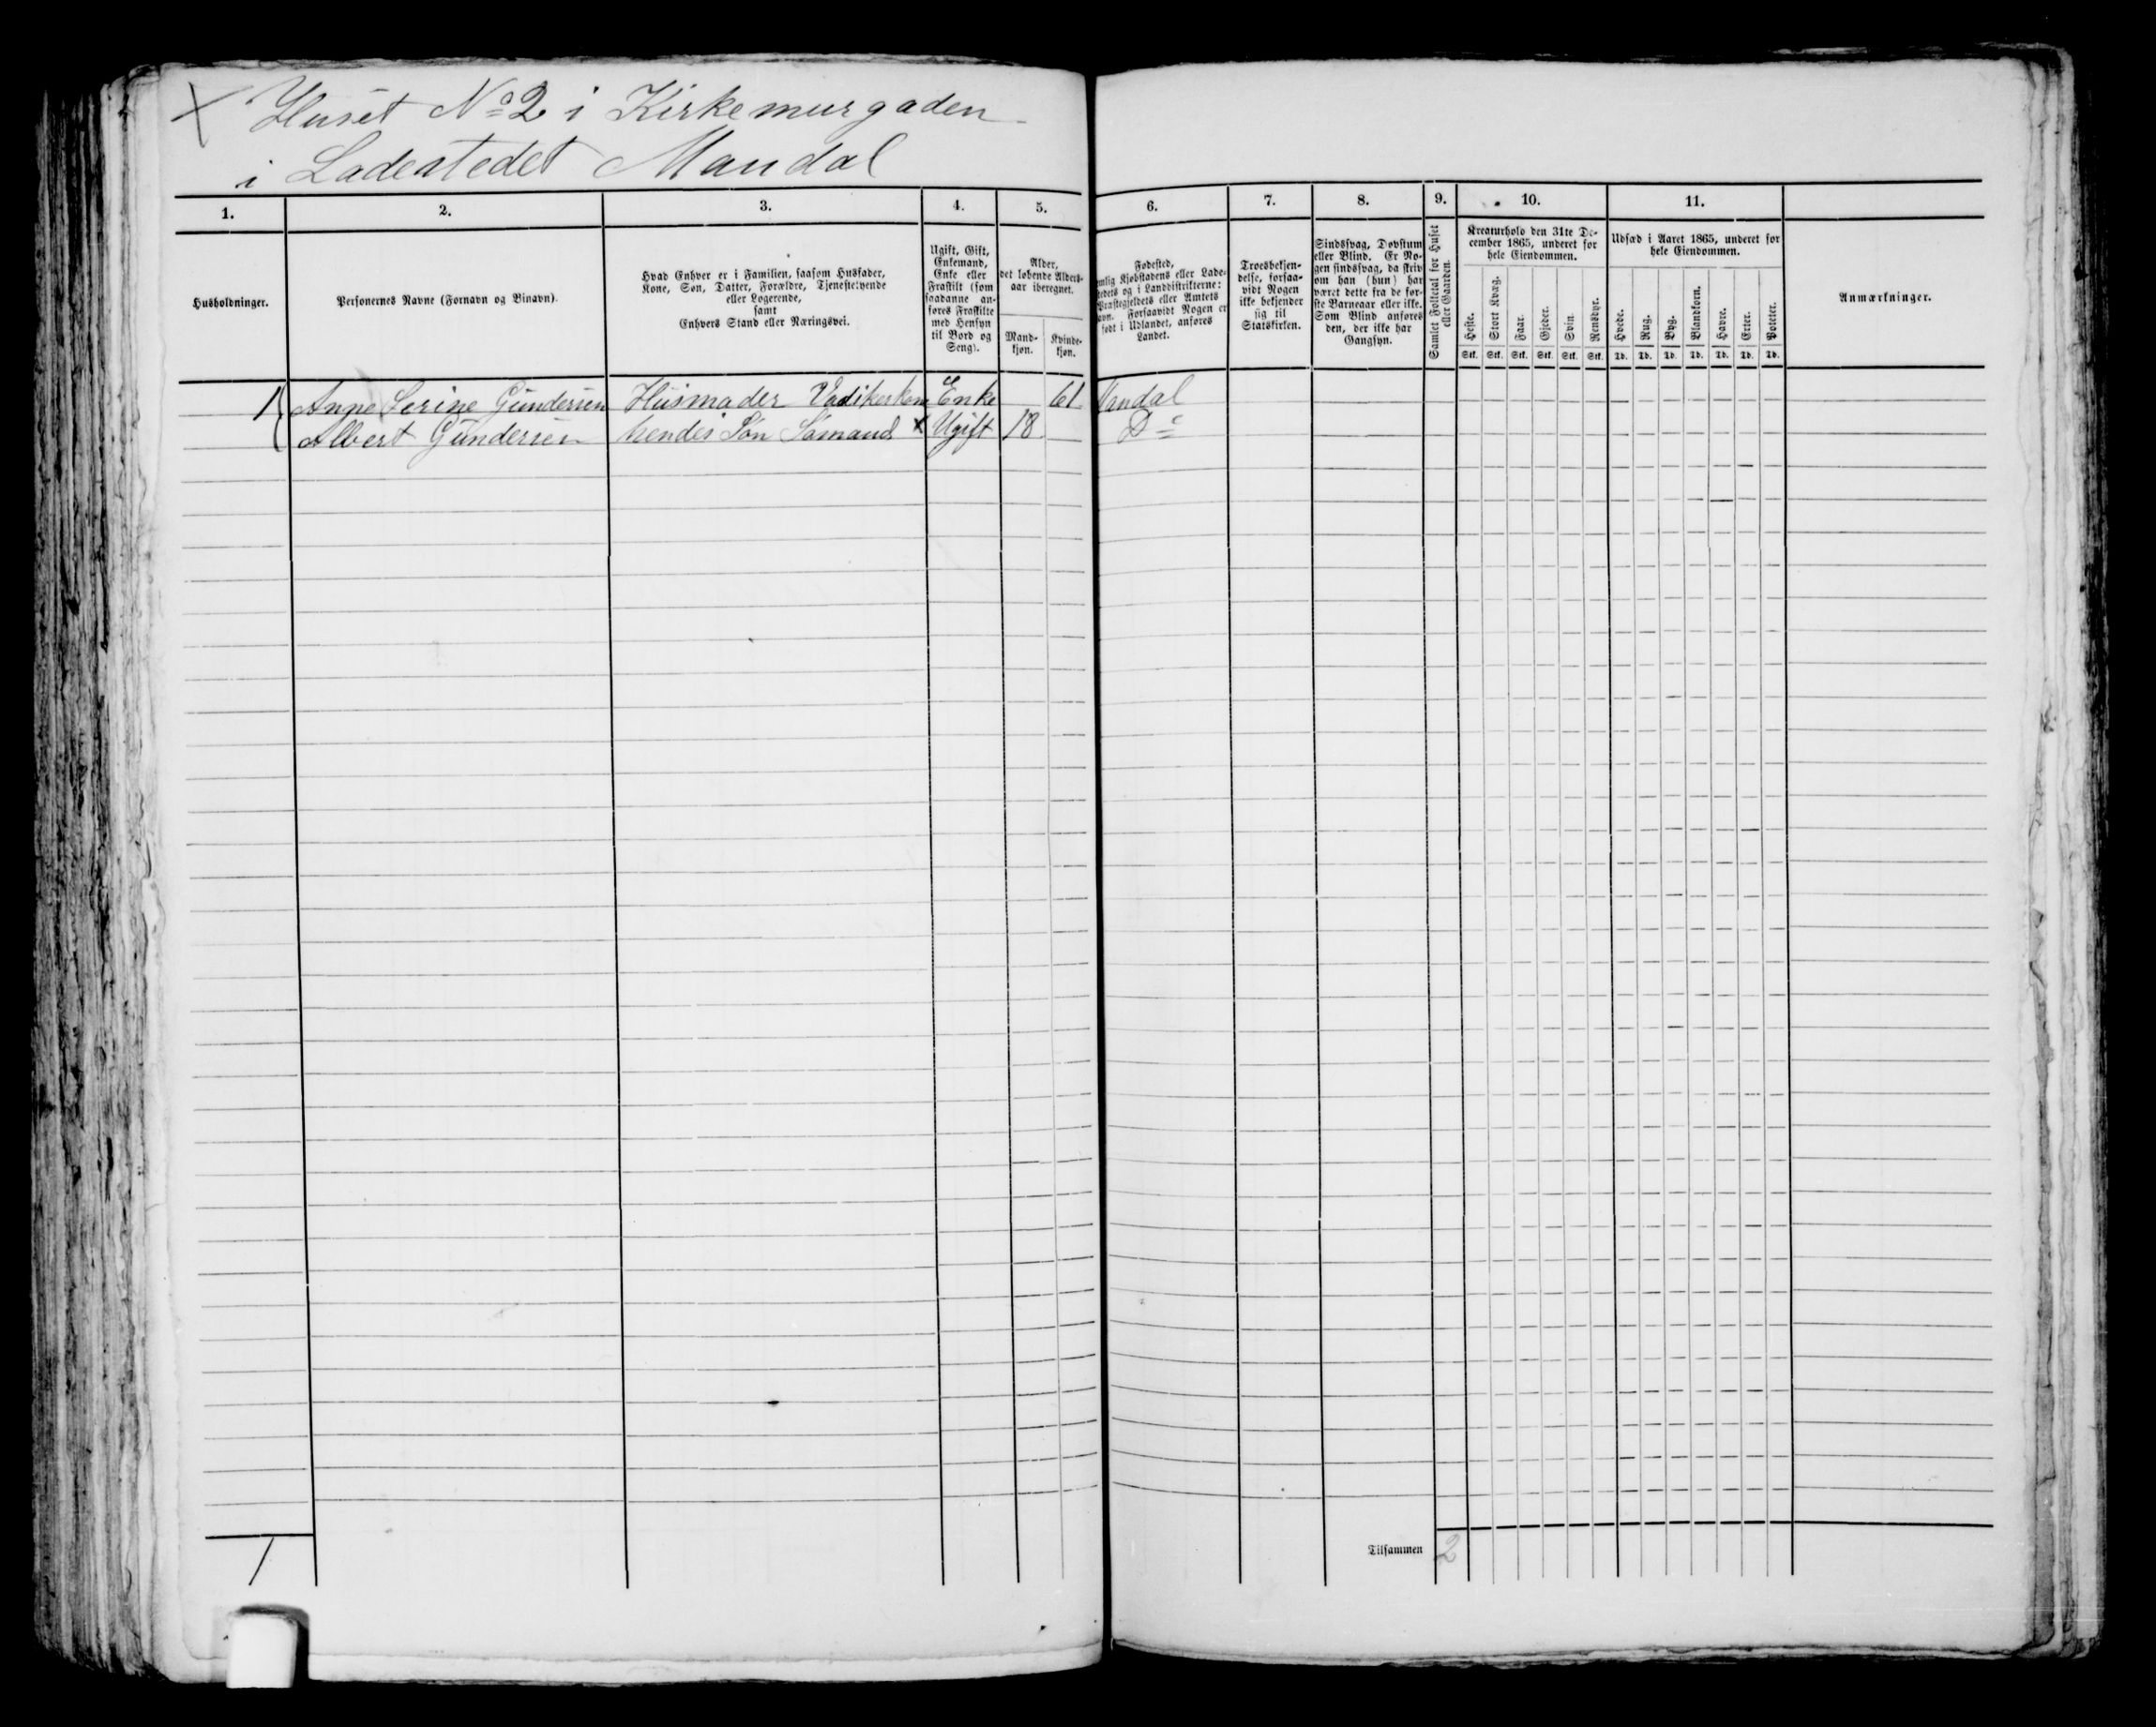 Huset No 2 i Kirkemurgaden
i Ladestedet Mandal
1. 2. 3. 4. 5. 6. 7. 8. 9. 10. 11.
Husholdninger.
Personernes Navne (Fornavn og Binavn).
Hvad Enhver er i Familien, saasom Husfader,
Kone, Søn, Datter, Forældre, Tjenestetyende
eller Logerende,
samt
Enhvers Stand eller Næringsvei.
Ugift, Gift,
Enkemand,
Enke eller
Fraskilt (som
saadanne an-
føres Fraskilte
med Hensyn
til Bord og
Seng).
Alder,
det løbende Alders-
aar iberegnet.
Mand-
kjøn.
Kvinde-
kjøn.
Fødested,
Kjøbstadens eller Lade-
og i Landdistrikterne:
eller Amtets
Forsaavidt Nogen er
født i Udlandet, anføres
Landet.
Troesbekjen-
delse, forsaa-
vidt Nogen
ikke bekjender
sig til
Statskirken.
Sindssvag, Døvstum
eller Blind. Er No-
gen sindssvag, da skriv
om han (hun) har
været dette fra de før-
ste Barneaar eller ikke.
Som Blind anføres
den, der ikke har
Gangsyn.
Samlet Folketal for Huset
eller Gaarden.
Kreaturhold den 31te De-
cember 1865, underet for
hele Eiendommen.
Heste. Stort Kvæg. Faar. Gjeder. Svin. Rensdyr.
Stk. Stk. Stk. Stk. Stk. Stk.
Udsæd i Aaret 1865, underet for
hele Eiendommen.
Hvede. Rug. Byg. Blandkorn. Havre. Erter. Poteter.
Td. Td. Td. Td. Td. Td. Td.
Anmærkninger.
1 Anne Serine Gundersen Husmoder Enke 61 Mandal
Albert Gundersen hendes Søn Sømand x Ugift 18 Do
1 Tilsammen 2